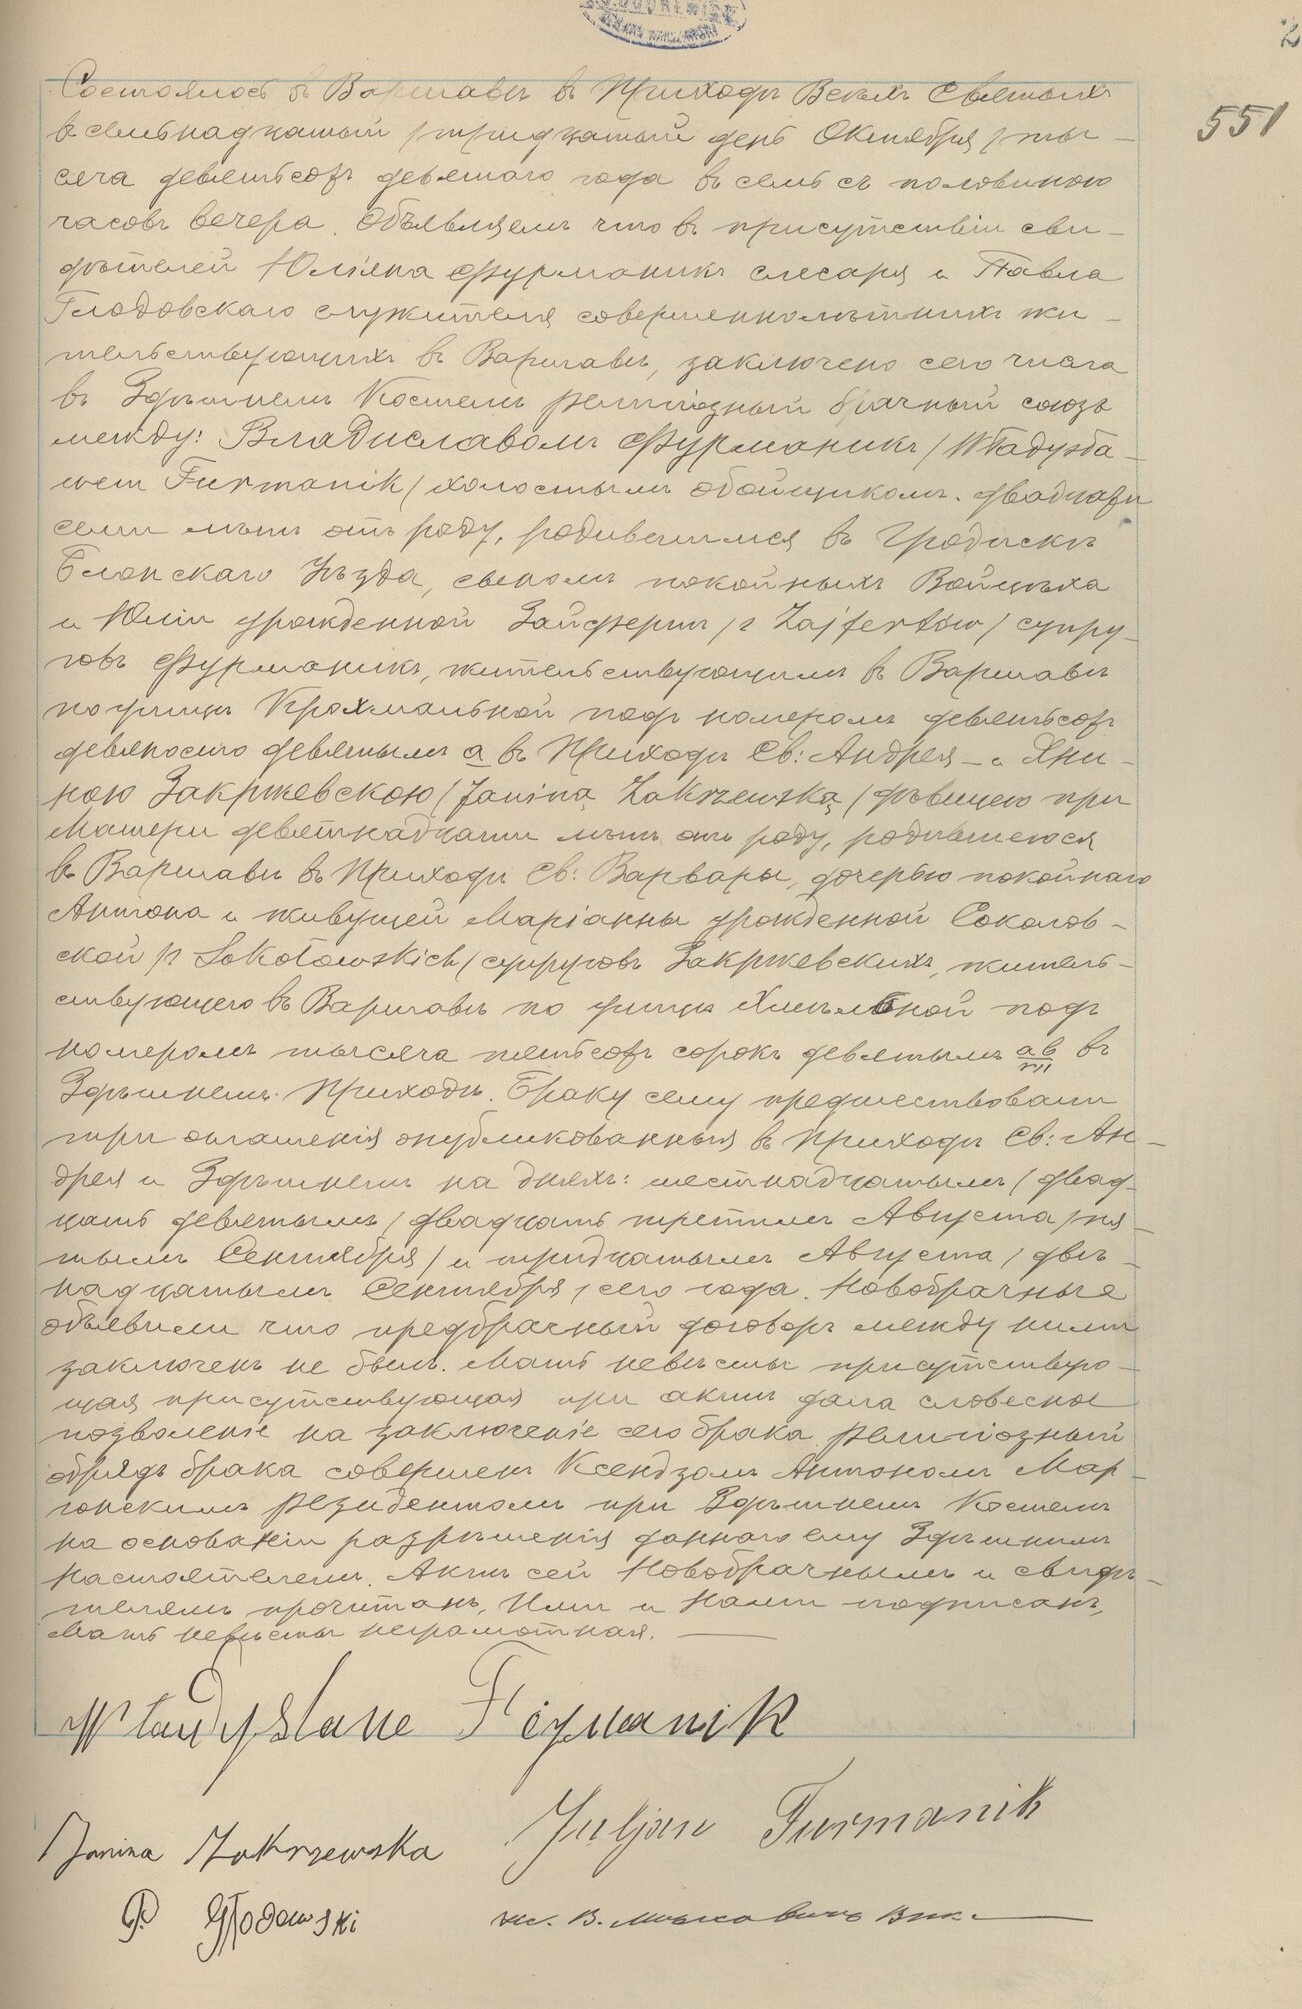 551
Состоялось въ Варшавѣ въ Приходѣ Всѣхъ Святыхъ
семьнадцатый /тридцатый день Октября/ ты-
сяча девятьсотъ девятаго года въ семь съ половиною
часовъ вечера. Объявляемъ что въ присутствіи сви-
дѣтелей Юліяна Фурманикъ слесаря и Павла
Глодовскаго служителя совершеннолѣтнихъ жи-
тельствующихъ въ Варшавѣ, заключено сего числа
въ Здѣшнемъ Костелѣ религіозный брачный союзъ
между: Владиславомъ Фурманикъ /Władysła-
wem Furmanik/ холостымъ обойщикомъ. двадцати
семи лѣтъ отъ роду, родившимся въ Гродискѣ
Блонскаго Уѣзда, сыномъ покойныхъ Войцѣха
и Юліи урожденной Зайфертъ /z Zajfertów/ супру-
говъ Фурманикъ, жительствующимъ въ Варшавѣ
по улицѣ Крохмальной подъ номеромъ девятьсотъ
девяносто девятымъ а въ Приходѣ Св: Андрея – и Яни-
ною Закржевскою /Janiną Zakrzewską/ дѣвицею при
Матери девятнадцати лѣтъ отъ роду, родившеюся
въ Варшавѣ въ Приходѣ Св: Варвары, дочерью покойнаго
Антона и живущей Маріанны урожденной Соколов-
ской /z Sokołowskich/ супруговъ Закржевскихъ, житель-
ствующего въ Варшавѣ по улицѣ Хмѣльной подъ
номеромъ тысяча пятьсотъ сорокъ девятымъ ав въ
Здѣшнемъ Приходѣ. Браку сему предшествовали
три оглашенія опубликованныя въ Приходѣ Св: Ан-
дрея и Здѣшнемъ на дняхъ: шестнадцатымъ /двад-
цать девятымъ/ двадцать третимъ Августа /пя-
тымъ Сентября/ и тридцатымъ Августа /двѣ-
надцатымъ Сентября/ сего года. Новобрачные
объявили что предбрачный договоръ между ними
заключенъ не былъ. Мать невѣсты присутствую-
щая присутствующая при актѣ дала словесное
позволеніе на заключеніе сего брака религіозный
обрядъ брака совершенъ Ксендзомъ Антономъ Мар-
гонскимъ Резидентомъ при Здѣшнемъ Костелѣ
на основаніи разрѣшенія даннаго ему Здѣшнимъ
Настоятелемъ. Актъ сей Новобрачнымъ и свидѣ-
телямъ прочитанъ, Ими и Нами подписанъ,
Мать невѣсты неграмотная.
Władysław Furmanik
Janina Zakrzewska Juljan Furmanik
P. Głodowski В. Вик.